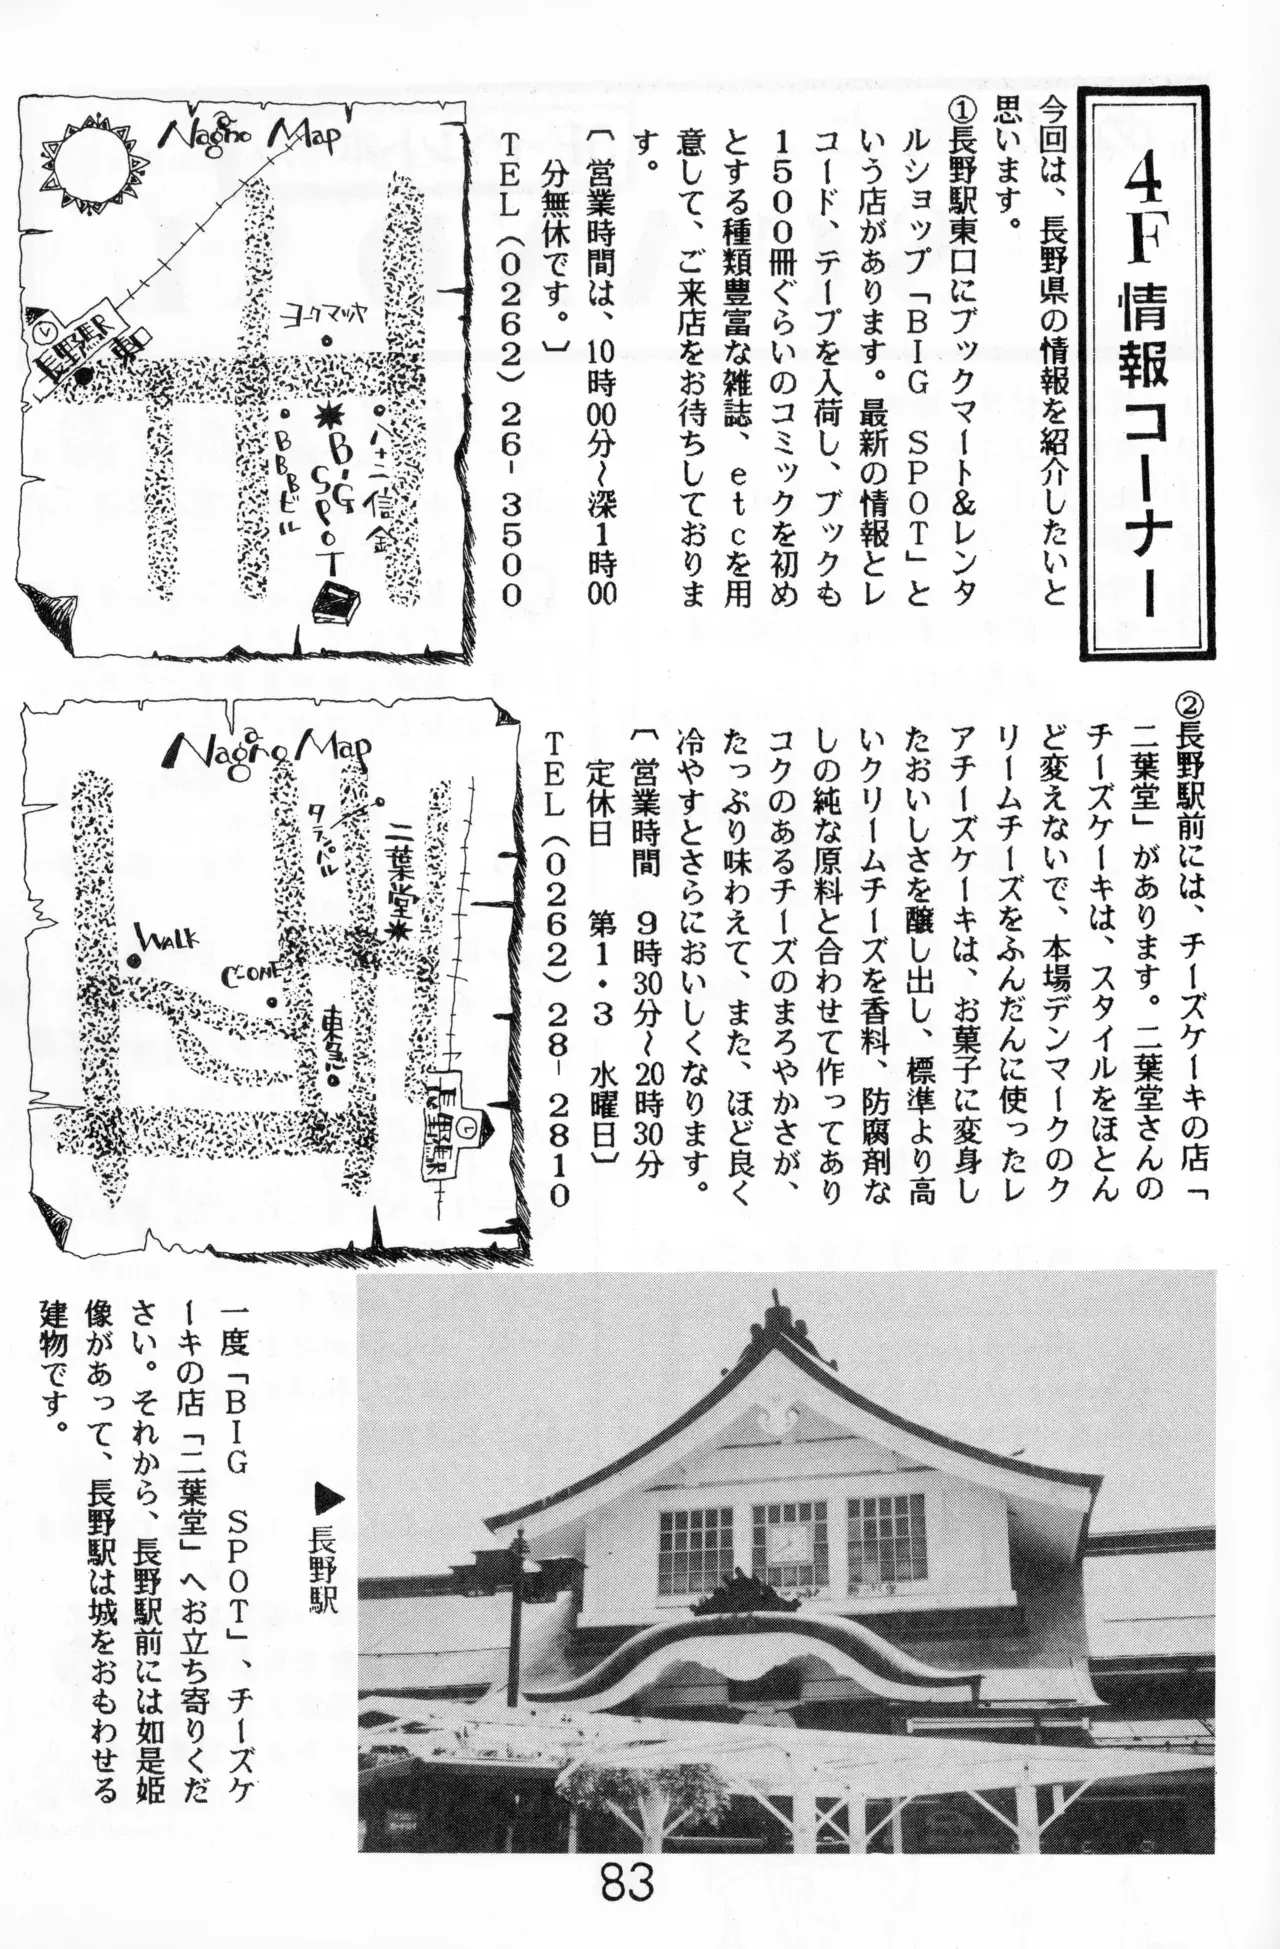 4F情報コーナー
今回は、長野県の情報を紹介したいと
思います。
①長野駅東口にブックマート&レンタ
ルショップ「BIG SPOT」と
いう店があります。最新の情報とレ
コード、テープを入荷し、ブックも
1500冊ぐらいのコミックを初め
とする種類豊富な雑誌、etcを用
意して、ご来店をお待ちしておりま
す。
〔営業時間は、10時00分〜深1時00
分無休です。〕
TEL(0262)26-3500
Nagano Map
ヨークマツヤ
長野駅
東口
八十二信金
BIG SPOT
BBBビル
②長野駅前には、チーズケーキの店「
二葉堂」があります。二葉堂さんの
チーズケーキは、スタイルをほとん
ど変えないで、本場デンマークのク
リームチーズをふんだんに使ったレ
アチーズケーキは、お菓子に変身し
たおいしさを醸し出し、標準より高
いクリームチーズを香料、防腐剤な
しの純な原料と合わせて作ってあり
コクのあるチーズのまろやかさが、
たっぷり味わえて、また、ほど良く
冷やすとさらにおいしくなります。
〔営業時間 9時30分〜20時30分
定休日 第1・3 水曜日〕
TEL(0262)28-2810
Nagano Map
二葉堂
WALK
CLONE
東急
長野駅
▶長野駅
一度「BIG SPOT」、チーズケ
ーキの店「二葉堂」へお立ち寄りくだ
さい。それから、長野駅前には如是姫
像があって、長野駅は城をおもわせる
建物です。
83